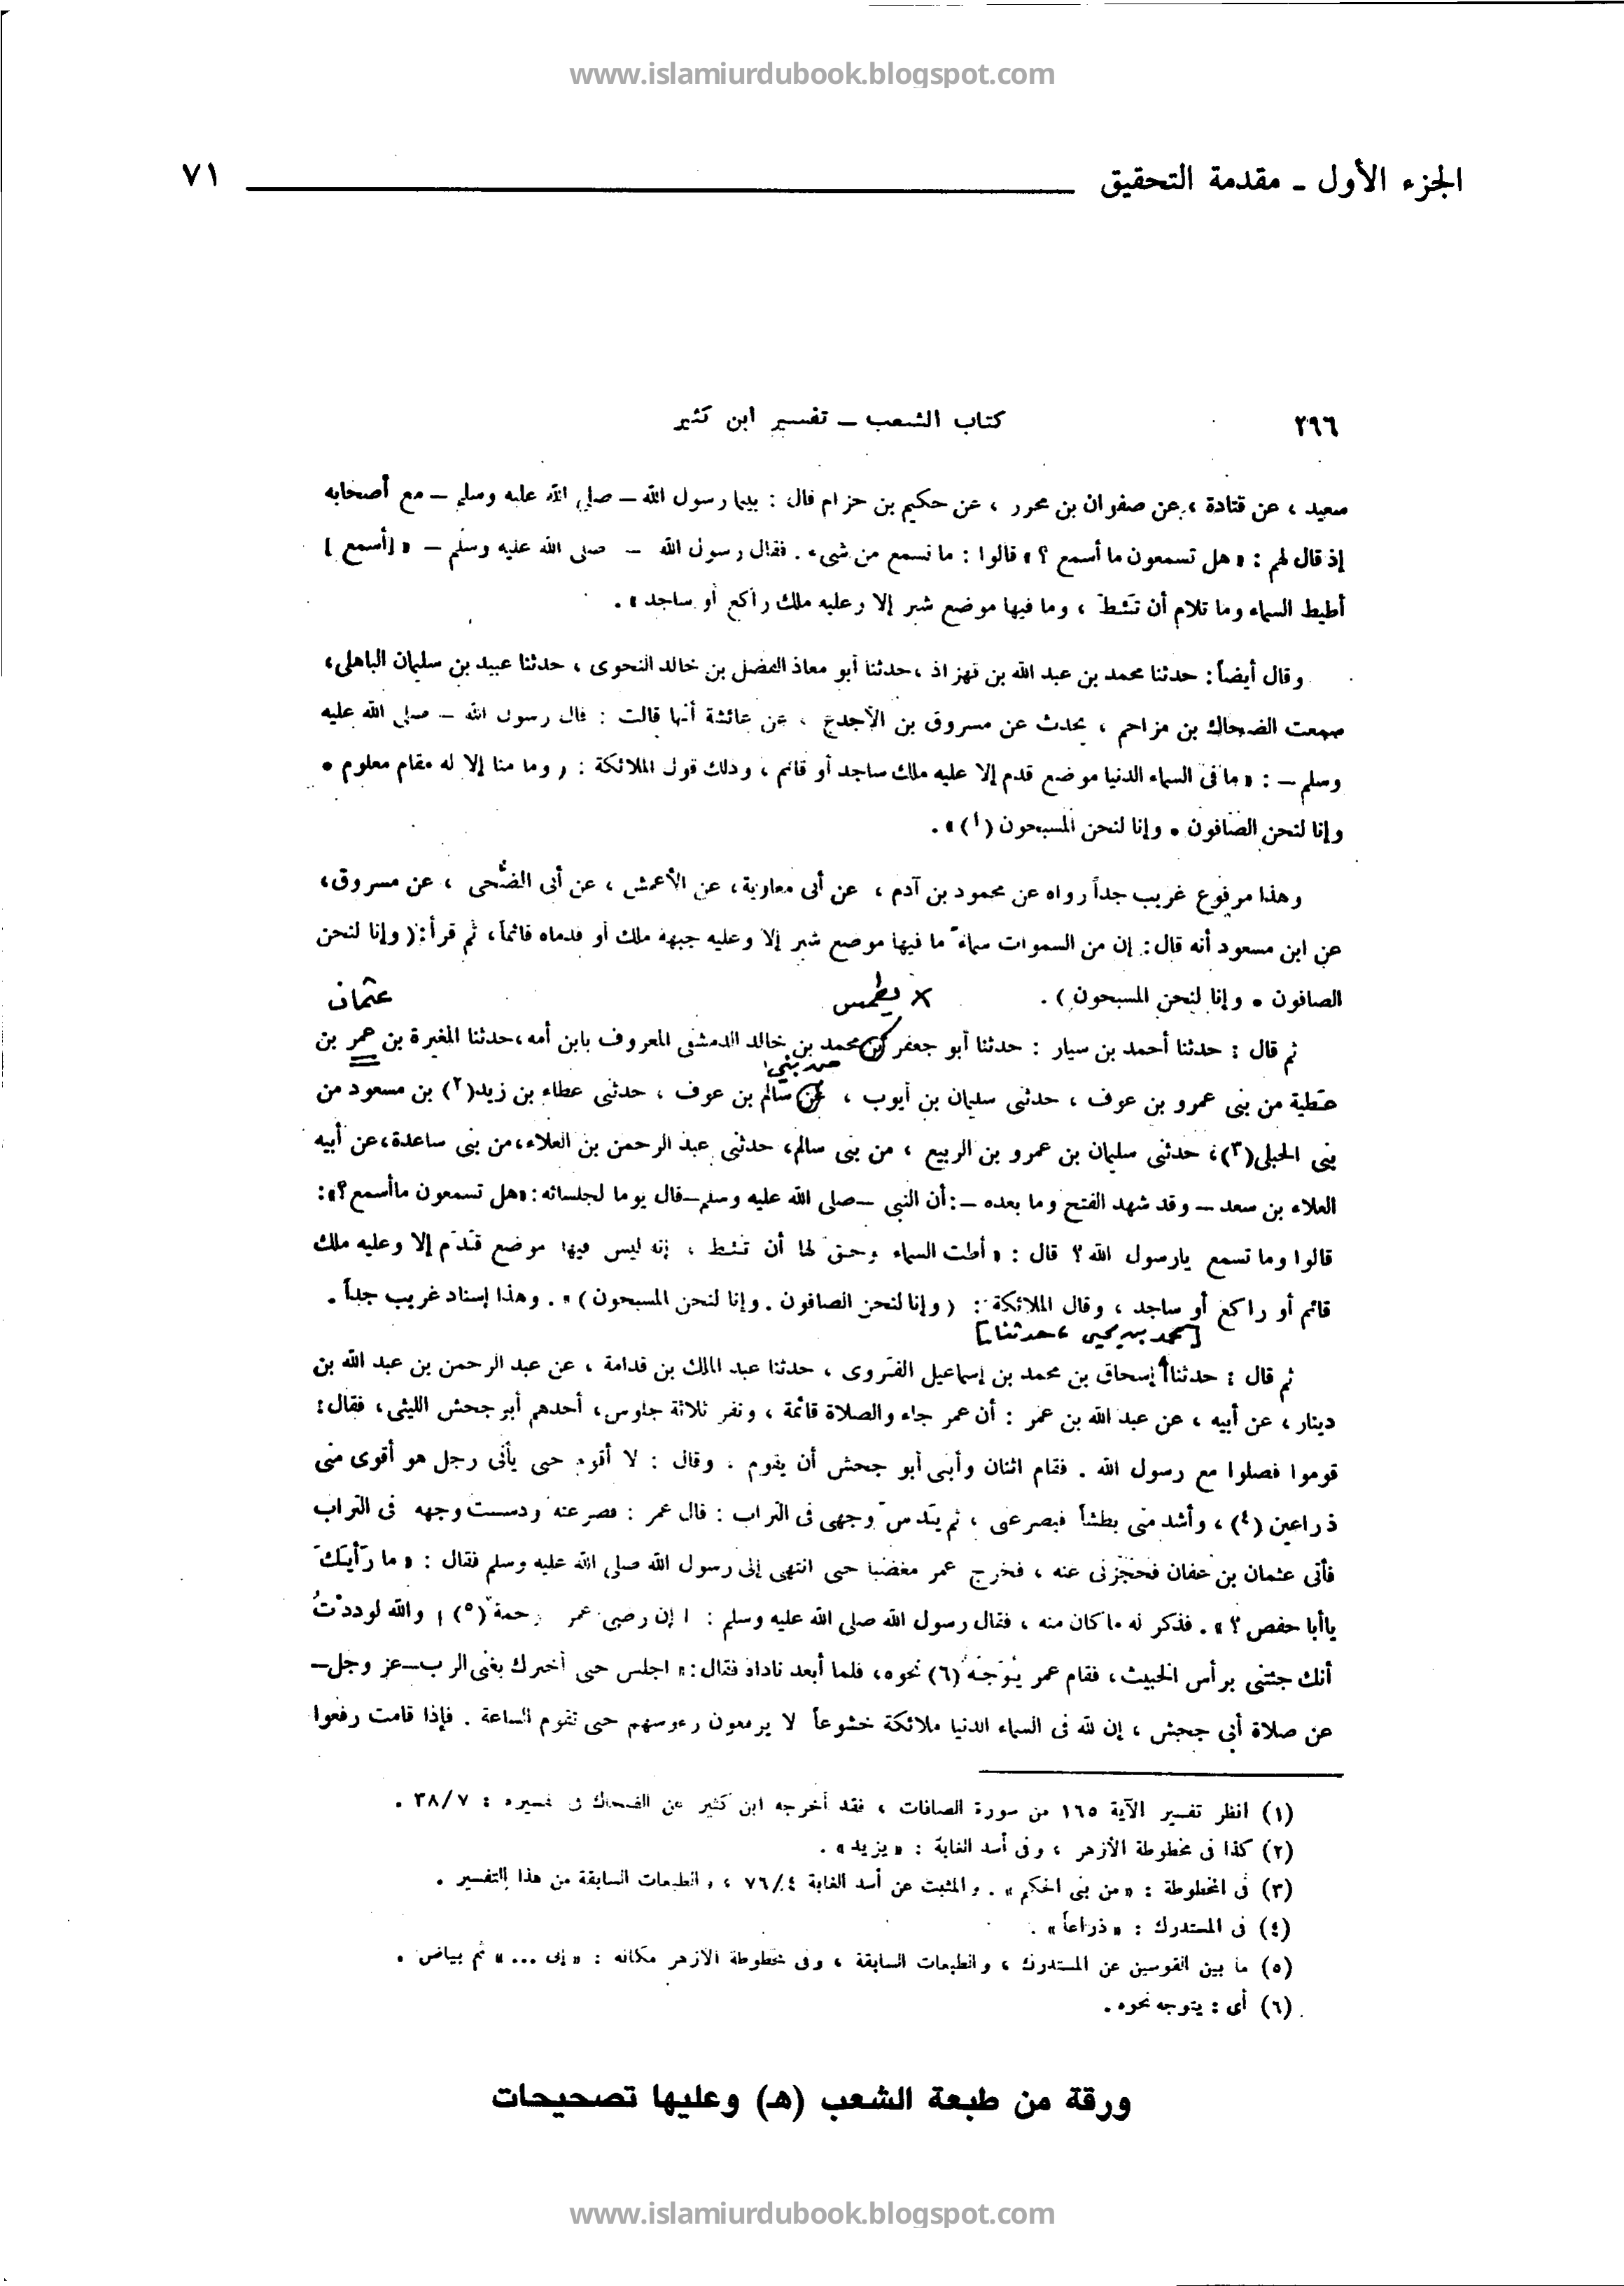 www.islamiurdubook.blogspot.com
الجزء الأول ـ مقدمة التحقيق ٧١
٢٩٦ كتاب الشعب ــ تفسير ابن كثير
سعيد ، عن قتادة ، عن صفوان بن محرر ، عن حكيم بن حزام قال : بينما رسول الله – صلى الله عليه وسلم – مع أصحابه
إذ قال لهم : « هل تسمعون ما أسمع ؟ » قالوا : ما نسمع من شىء . فقال رسول الله – صلى الله عليه وسلم – « [أسمع]
أطيط السماء وما تلام أن تئط ، وما فيها موضع شبر إلا وعليه ملك راكع أو ساجد » .
وقال أيضاً : حدثنا محمد بن عبد الله بن قهزاذ ، حدثنا أبو معاذ الفضل بن خالد النحوى ، حدثنا عبيد بن سليمان الباهلى ،
سمعت الضحاك بن مزاحم ، يحدث عن مسروق بن الأجدع ، عن عائشة أنها قالت : قال رسول الله – صلى الله عليه
وسلم – : « ما فى السماء الدنيا موضع قدم إلا عليه ملك ساجد أو قائم ، وذلك قول الملائكة : ( وما منا إلا له مقام معلوم •
وإنا لنحن الصافون • وإنا لنحن المسبحون (١) » .
وهذا مرفوع غريب جداً رواه عن محمود بن آدم ، عن أبى معاوية ، عن الأعمش ، عن أبى الضُّحى ، عن مسروق ،
عن ابن مسعود أنه قال : إن من السموات سماء ما فيها موضع شبر إلا وعليه جبهة ملك أو قدماه قائماً ، ثم قرأ : ( وإنا لنحن
الصافون • وإنا لنحن المسبحون ) . × يطمس عثمان
ثم قال : حدثنا أحمد بن سيار : حدثنا أبو جعفر بن محمد بن خالد الدمشقى المعروف بابن أمه ، حدثنا المغيرة بن عمر بن
من بنى
عطية من بنى عمرو بن عوف ، حدثنى سليمان بن أيوب ، عن سالم بن عوف ، حدثنى عطاء بن زيد(٢) بن مسعود من
بنى الحبلى(٣) ، حدثنى سليمان بن عمرو بن الربيع ، من بنى سالم ، حدثنى عبد الرحمن بن العلاء ، من بنى ساعدة ، عن أبيه
العلاء بن سعد – وقد شهد الفتح وما بعده – : أن النبى – صلى الله عليه وسلم – قال يوما لجلسائه : « هل تسمعون ما أسمع ؟ » :
قالوا وما تسمع يا رسول الله ؟ قال : « أطت السماء وحق لها أن تئط ، إنه ليس فيها موضع قدم إلا وعليه ملك
قائم أو راكع أو ساجد ، وقال الملائكة : ( وإنا لنحن الصافون . وإنا لنحن المسبحون ) » . وهذا إسناد غريب جداً .
[محمد بن يحيى ، حدثنا]
ثم قال : حدثنا إسحاق بن محمد بن إسماعيل الفروى ، حدثنا عبد الملك بن قدامة ، عن عبد الرحمن بن عبد الله بن
دينار ، عن أبيه ، عن عبد الله بن عمر : أن عمر جاء والصلاة قائمة ، ونفر ثلاثة جلوس ، أحدهم أبو جحش الليثى ، فقال :
قوموا فصلوا مع رسول الله . فقام اثنان وأبى أبو جحش أن يقوم ، وقال : لا أقوم حتى يأتى رجل هو أقوى منى
ذراعين (٤) ، وأشد منى بطشاً فيصرعنى ، ثم يدس وجهى فى التراب : قال عمر : فصرعته ودسست وجهه فى التراب
فأتى عثمان بن عفان فحجزنى عنه ، فخرج عمر مغضبا حتى انتهى إلى رسول الله صلى الله عليه وسلم فقال : « ما رأيك
يا أبا حفص ؟ » . فذكر له ما كان منه ، فقال رسول الله صلى الله عليه وسلم : ( إن رضى عمر رحمة (٥) ) والله لوددتُ
أنك جئتنى برأس الخبيث ، فقام عمر يُوَجِّه (٦) نحوه ، فلما أبعد ناداه فقال : « اجلس حتى أخبرك بغنى الرب – عز وجل –
عن صلاة أبى جحش ، إن لله فى السماء الدنيا ملائكة خشوعاً لا يرفعون رءوسهم حتى تقوم الساعة . فإذا قامت رفعوا
(١) انظر تفسير الآية ١٦٥ من سورة الصافات ، فقد أخرجه ابن كثير عن الضحاك فى تفسيره : ٣٨/٧ .
(٢) كذا فى مخطوطة الأزهر ، وفى أسد الغابة : « يزيد » .
(٣) فى المخطوطة : « من بنى الحكم » . والمثبت عن أسد الغابة ٧٦/٤ ، والطبعات السابقة من هذا التفسير .
(٤) فى المستدرك : « ذراعاً » .
(٥) ما بين القوسين عن المستدرك ، والطبعات السابقة ، وفى مخطوطة الأزهر مكانه : « إلى ... » ثم بياض .
(٦) أى : يتوجه نحوه .
ورقة من طبعة الشعب (هـ) وعليها تصحيحات
www.islamiurdubook.blogspot.com